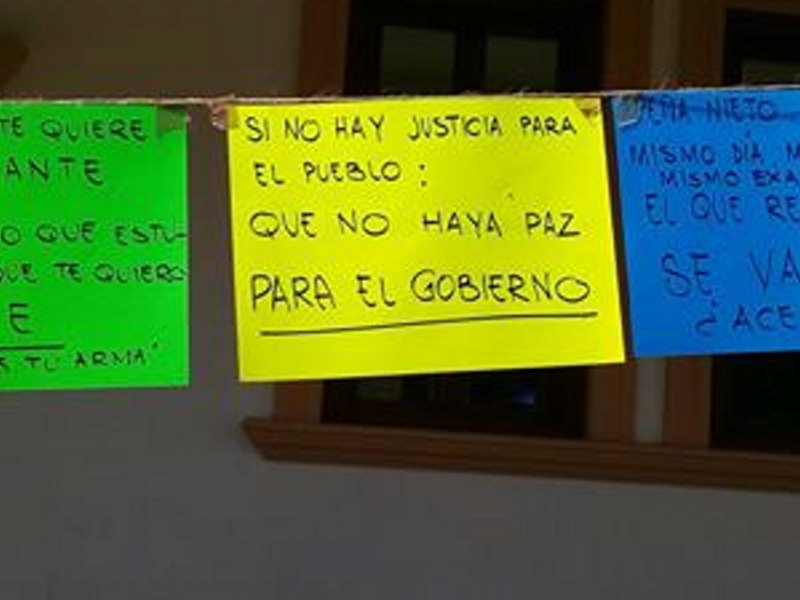 TE QUIERE
ANTE
O QUE ESTU-
QUE TE QUIERO
E
TU ARMA"
SI NO HAY JUSTICIA PARA
EL PUEBLO :
QUE NO HAYA PAZ
PARA EL GOBIERNO
PEÑA NIETO
MISMO DÍA M
MISMO EXA
EL QUE RE
SE VA
¿ACE